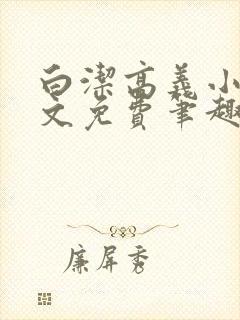 白潔高義小
文免費筆趣
廉屏秀